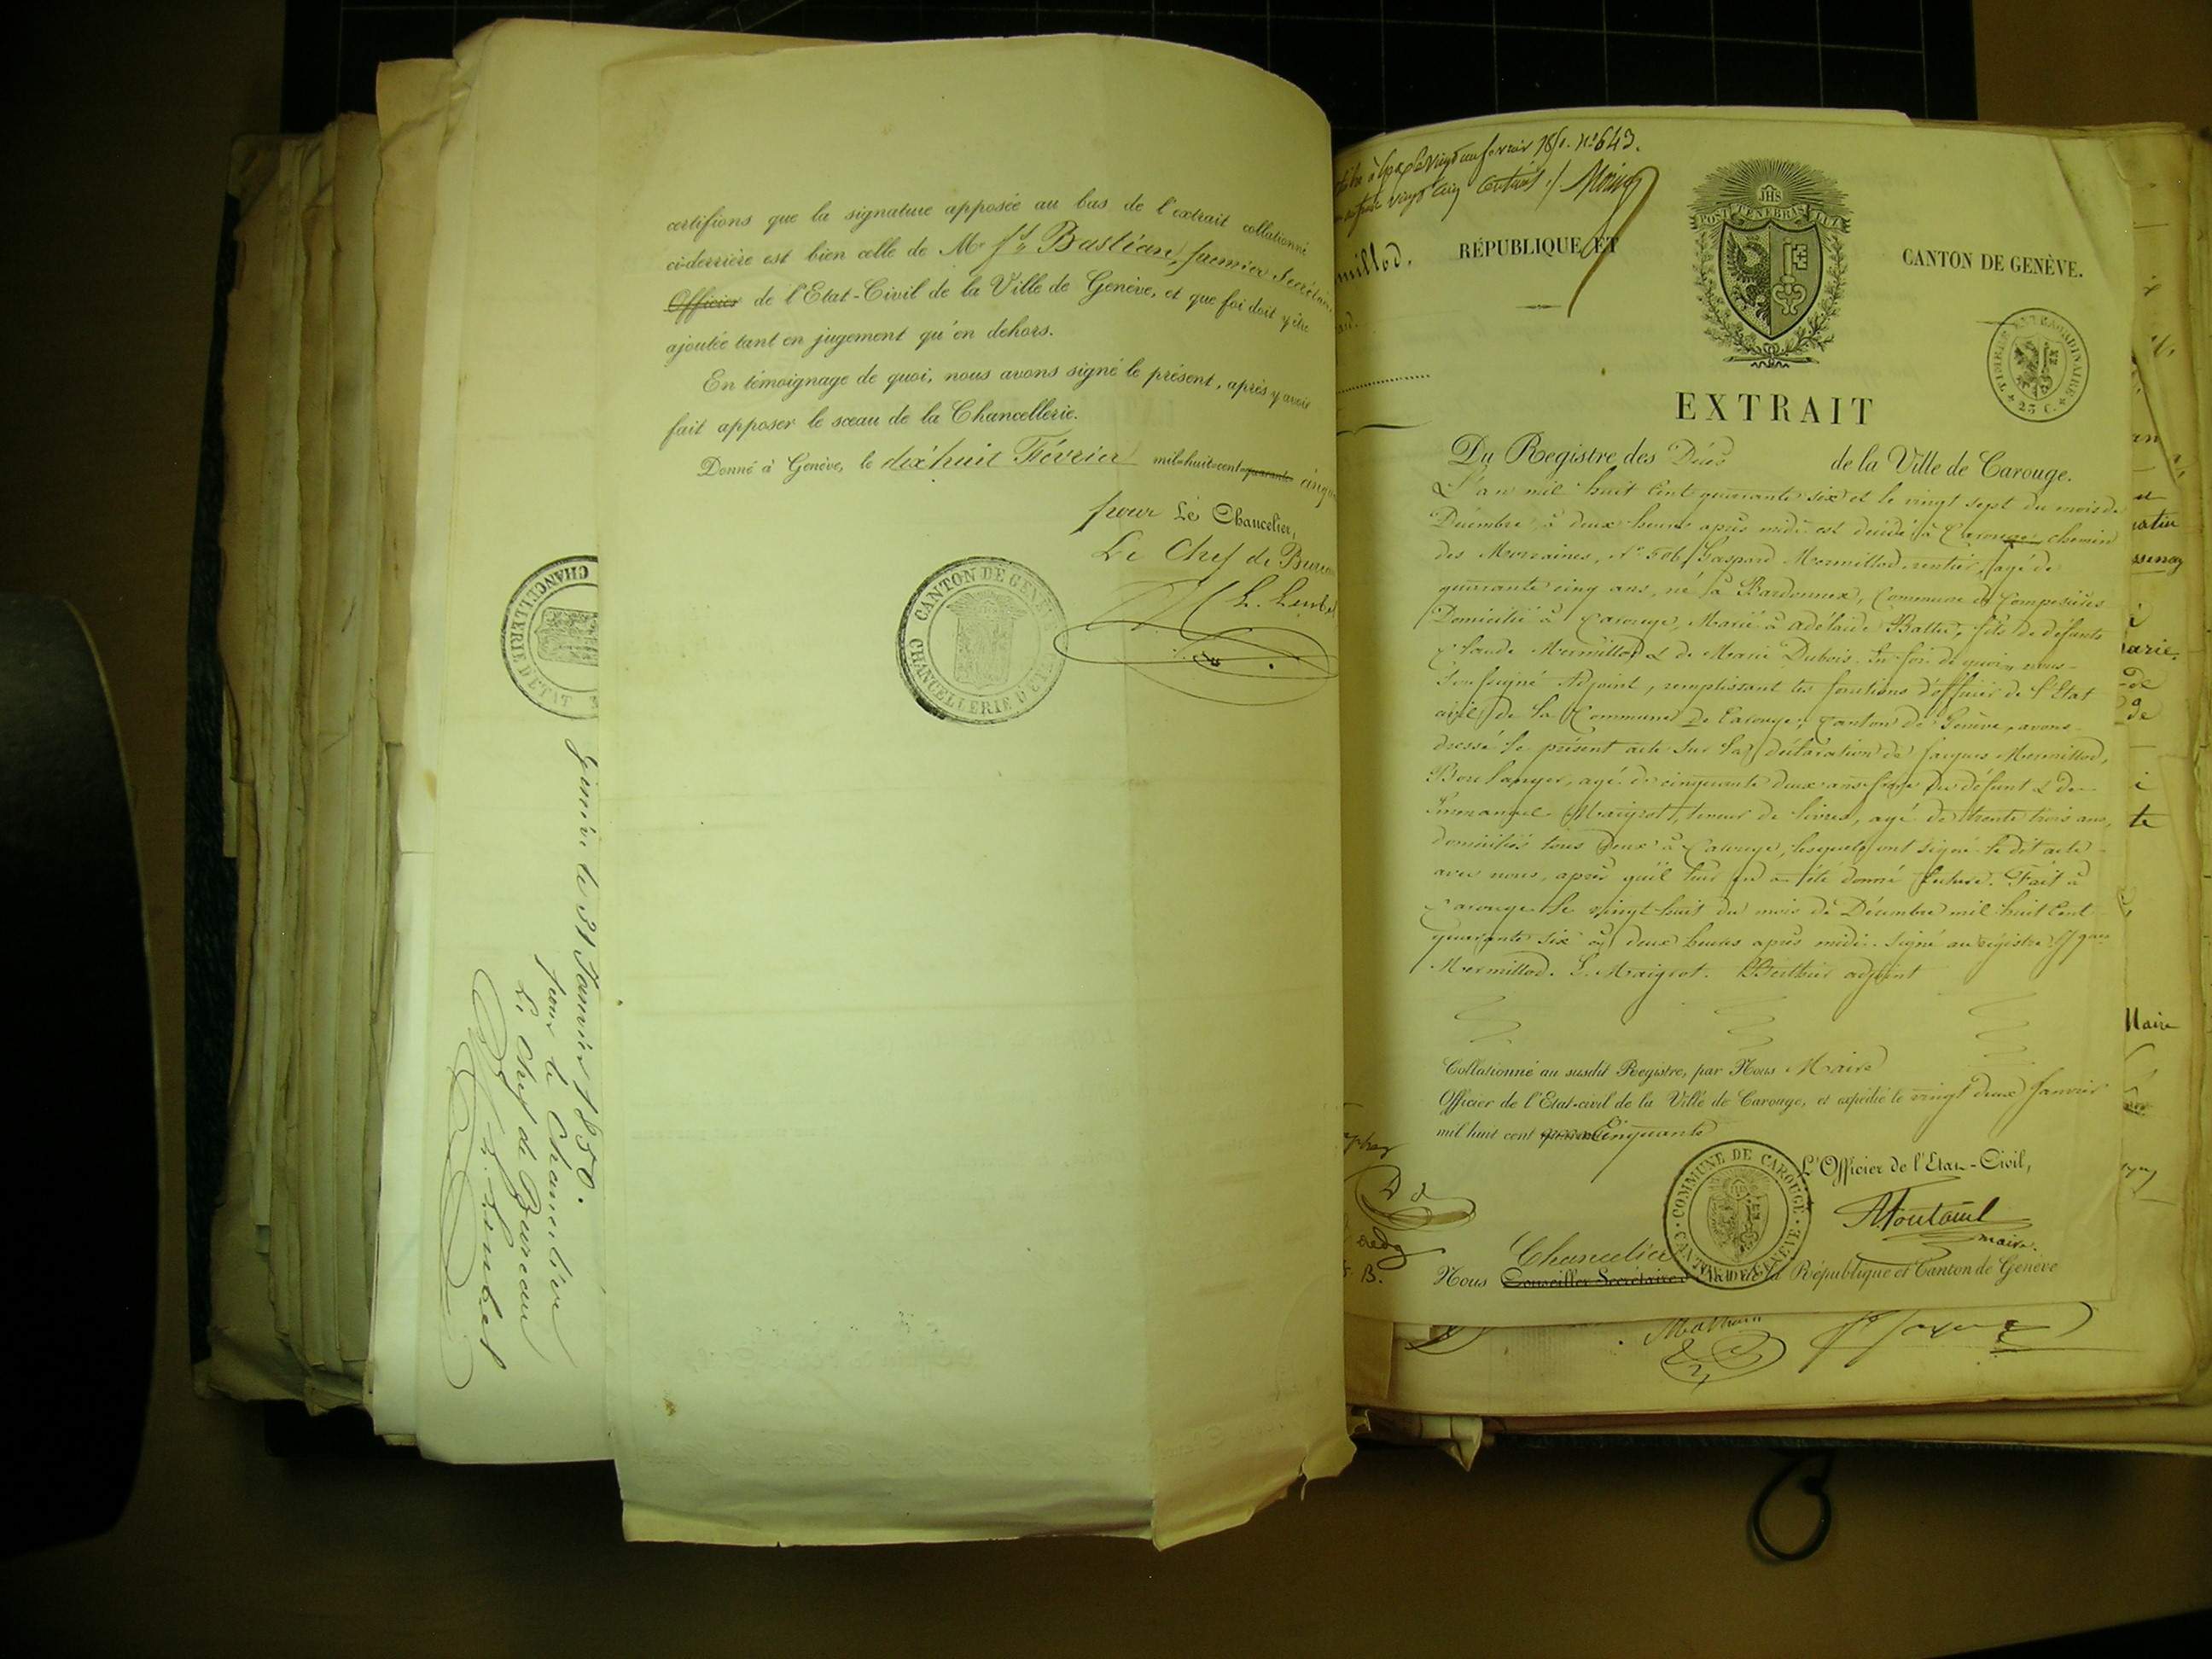 certifions que la signature apposée au bas de l'extrait collationné
ci-derrière est bien celle de Mr fs Bastian, premier Secrétaire
Officier de l'Etat-Civil de la Ville de Genève, et que foi doit y être
ajoutée tant en jugement qu'en dehors.
En témoignage de quoi, nous avons signé le présent, après y avoir
fait apposer le sceau de la Chancellerie.
Donné à Genève, le dix huit Février mil-huit-cent-quarante cinqu
pour Le Chancelier,
Le Chef de Bureau
CANTON DE GENÈVE
CHANCELLERIE D'ETAT
CHANCELLERIE D'ETAT
Genève le 31 Janvier 1850.
pour le Chancelier
Le Chef de Bureau
vingt un février No 643.
vingt cinq centimes
millod.
RÉPUBLIQUE ET CANTON DE GENÈVE.
JHS
POST TENEBRAS LUX
TIMBRE EXTRAORDINAIRE
25 C.
EXTRAIT
Du Registre des Décès de la Ville de Carouge.
L'an mil huit cent quarante six et le vingt sept du mois de
Décembre à deux heures après midi est décédé à Carouge chemin
des Morraines, No 506, Gaspard Mermillod, rentier, agé de
quarante cinq ans, né à Bardonnex, Commune de Compesières
Domicilié à Carouge, Marié à adélaïde Ballet, fils de défunts
Claude Mermillod & de Marie Dubois. En foi de quoi, nous
soussigné Adjoint, remplissant les fonctions d'officier de l'Etat
civil de la Commune de Carouge, Canton de Genève, avons
dressé le présent acte sur la déclaration de Jacques Mermillod,
Boulanger, agé de cinquante deux ans frère du défunt & de
Emmanuel Maigrot, teneur de livres, agé de trente trois ans,
domiciliés tous deux à Carouge, lesquels ont signé le dit acte
avec nous, après qu'il leur en a été donné lecture. Fait à
Carouge le vingt-huit du mois de Décembre mil huit cent
quarante six à deux heures après midi. Signé au régistre Jques
Mermillod. E. Maigrot. Berthier adjoint
Collationné au susdit Registre, par Nous Maire
Officier de l'Etat-civil de la Ville de Carouge, et expédié le vingt deux Janvier
mil huit cent quaran Cinquante
COMMUNE DE CAROUGE
CANTON DE GENÈVE
L'Officier de l'Etat-Civil,
maire.
Chancelier
Nous Conseiller Secrétaire d'Etat de la République et Canton de Genève
Maire